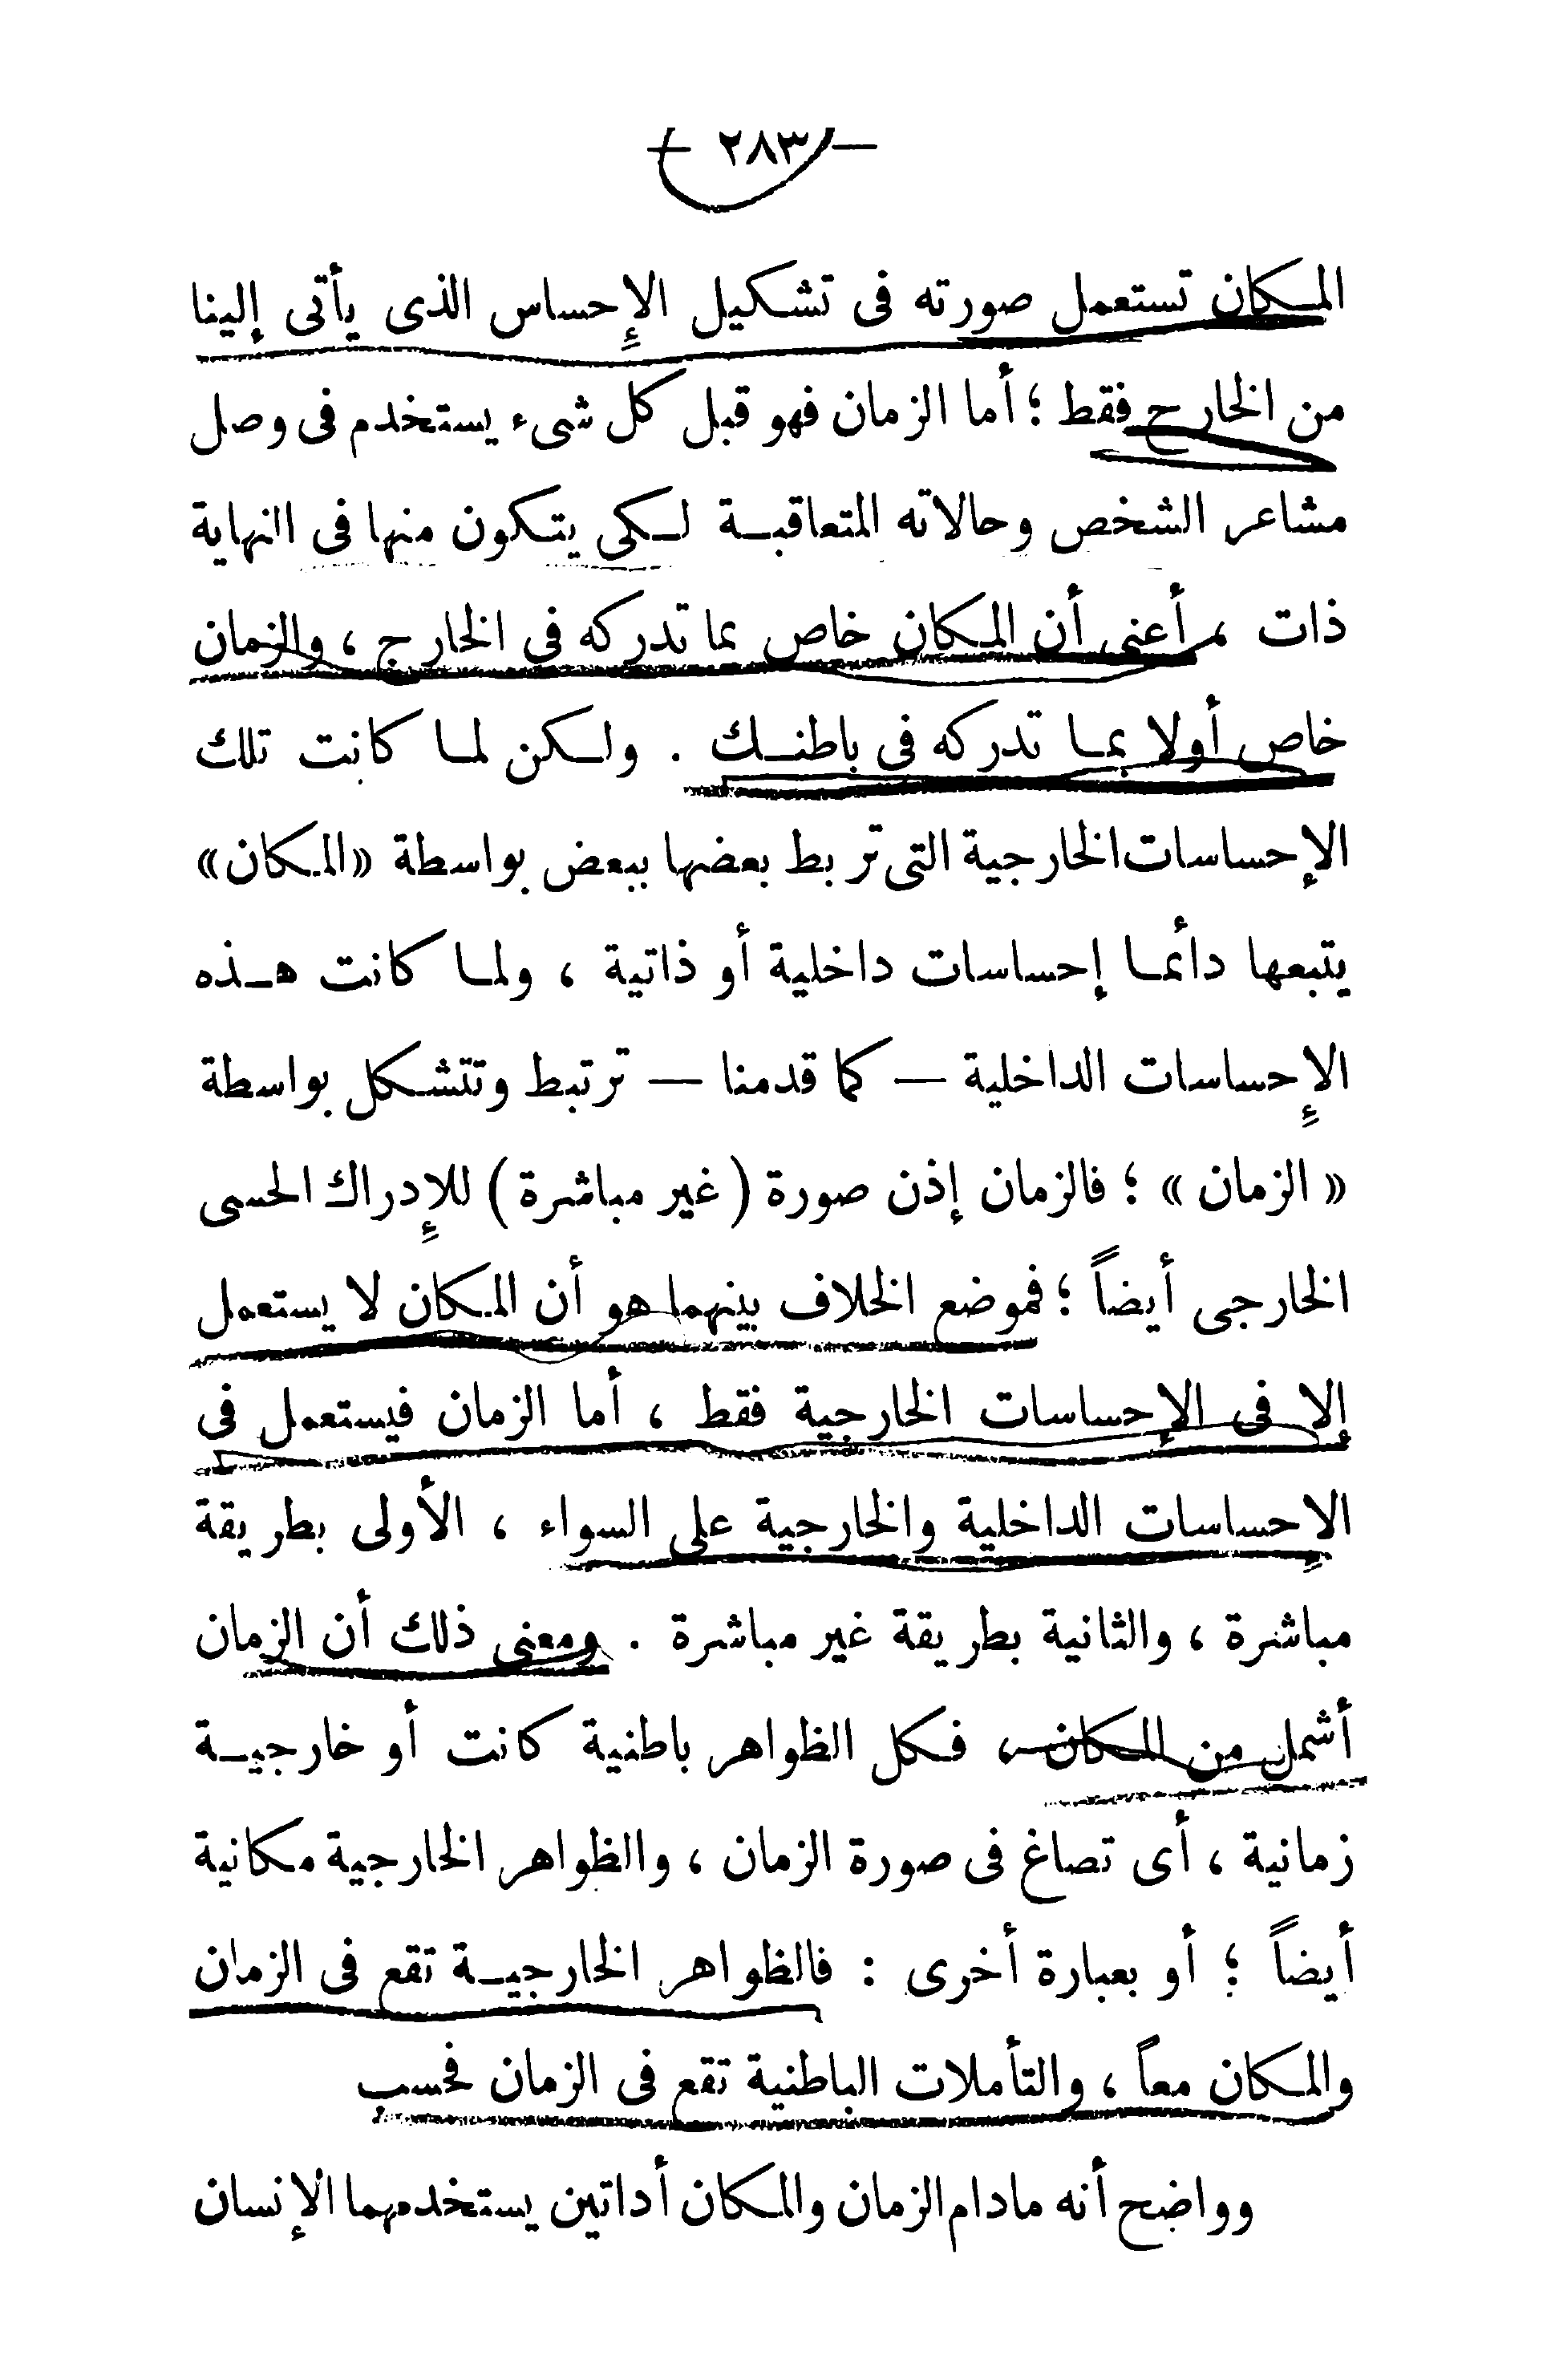 — ٢٨٣ —
المكان تستعمل صورته فى تشكيل الإحساس الذى يأتى إلينا
من الخارج فقط ؛ أما الزمان فهو قبل كل شىء يستخدم فى وصل
مشاعر الشخص وحالاته المتعاقبة لكى يتكون منها فى النهاية
ذات ، أعنى أن المكان خاص بما تدركه فى الخارج ، والزمان
خاص أولا بما تدركه فى باطنك . ولكن لما كانت تلك
الإحساسات الخارجية التى تربط بعضها ببعض بواسطة «المكان»
يتبعها دائما إحساسات داخلية أو ذاتية ، ولما كانت هذه
الإحساسات الداخلية — كما قدمنا — ترتبط وتتشكل بواسطة
« الزمان » ؛ فالزمان إذن صورة ( غير مباشرة ) للإدراك الحسى
الخارجى أيضاً ؛ فموضع الخلاف بينهما هو أن المكان لا يستعمل
إلا فى الإحساسات الخارجية فقط ، أما الزمان فيستعمل فى
الإحساسات الداخلية والخارجية على السواء ، الأولى بطريقة
مباشرة ، والثانية بطريقة غير مباشرة . ومعنى ذلك أن الزمان
أشمل من المكان ، فكل الظواهر باطنية كانت أو خارجية
زمانية ، أى تصاغ فى صورة الزمان ، والظواهر الخارجية مكانية
أيضاً ؛ أو بعبارة أخرى : فالظواهر الخارجية تقع فى الزمان
والمكان معاً ، والتأملات الباطنية تقع فى الزمان فحسب
وواضح أنه مادام الزمان والمكان أداتين يستخدمهما الإنسان